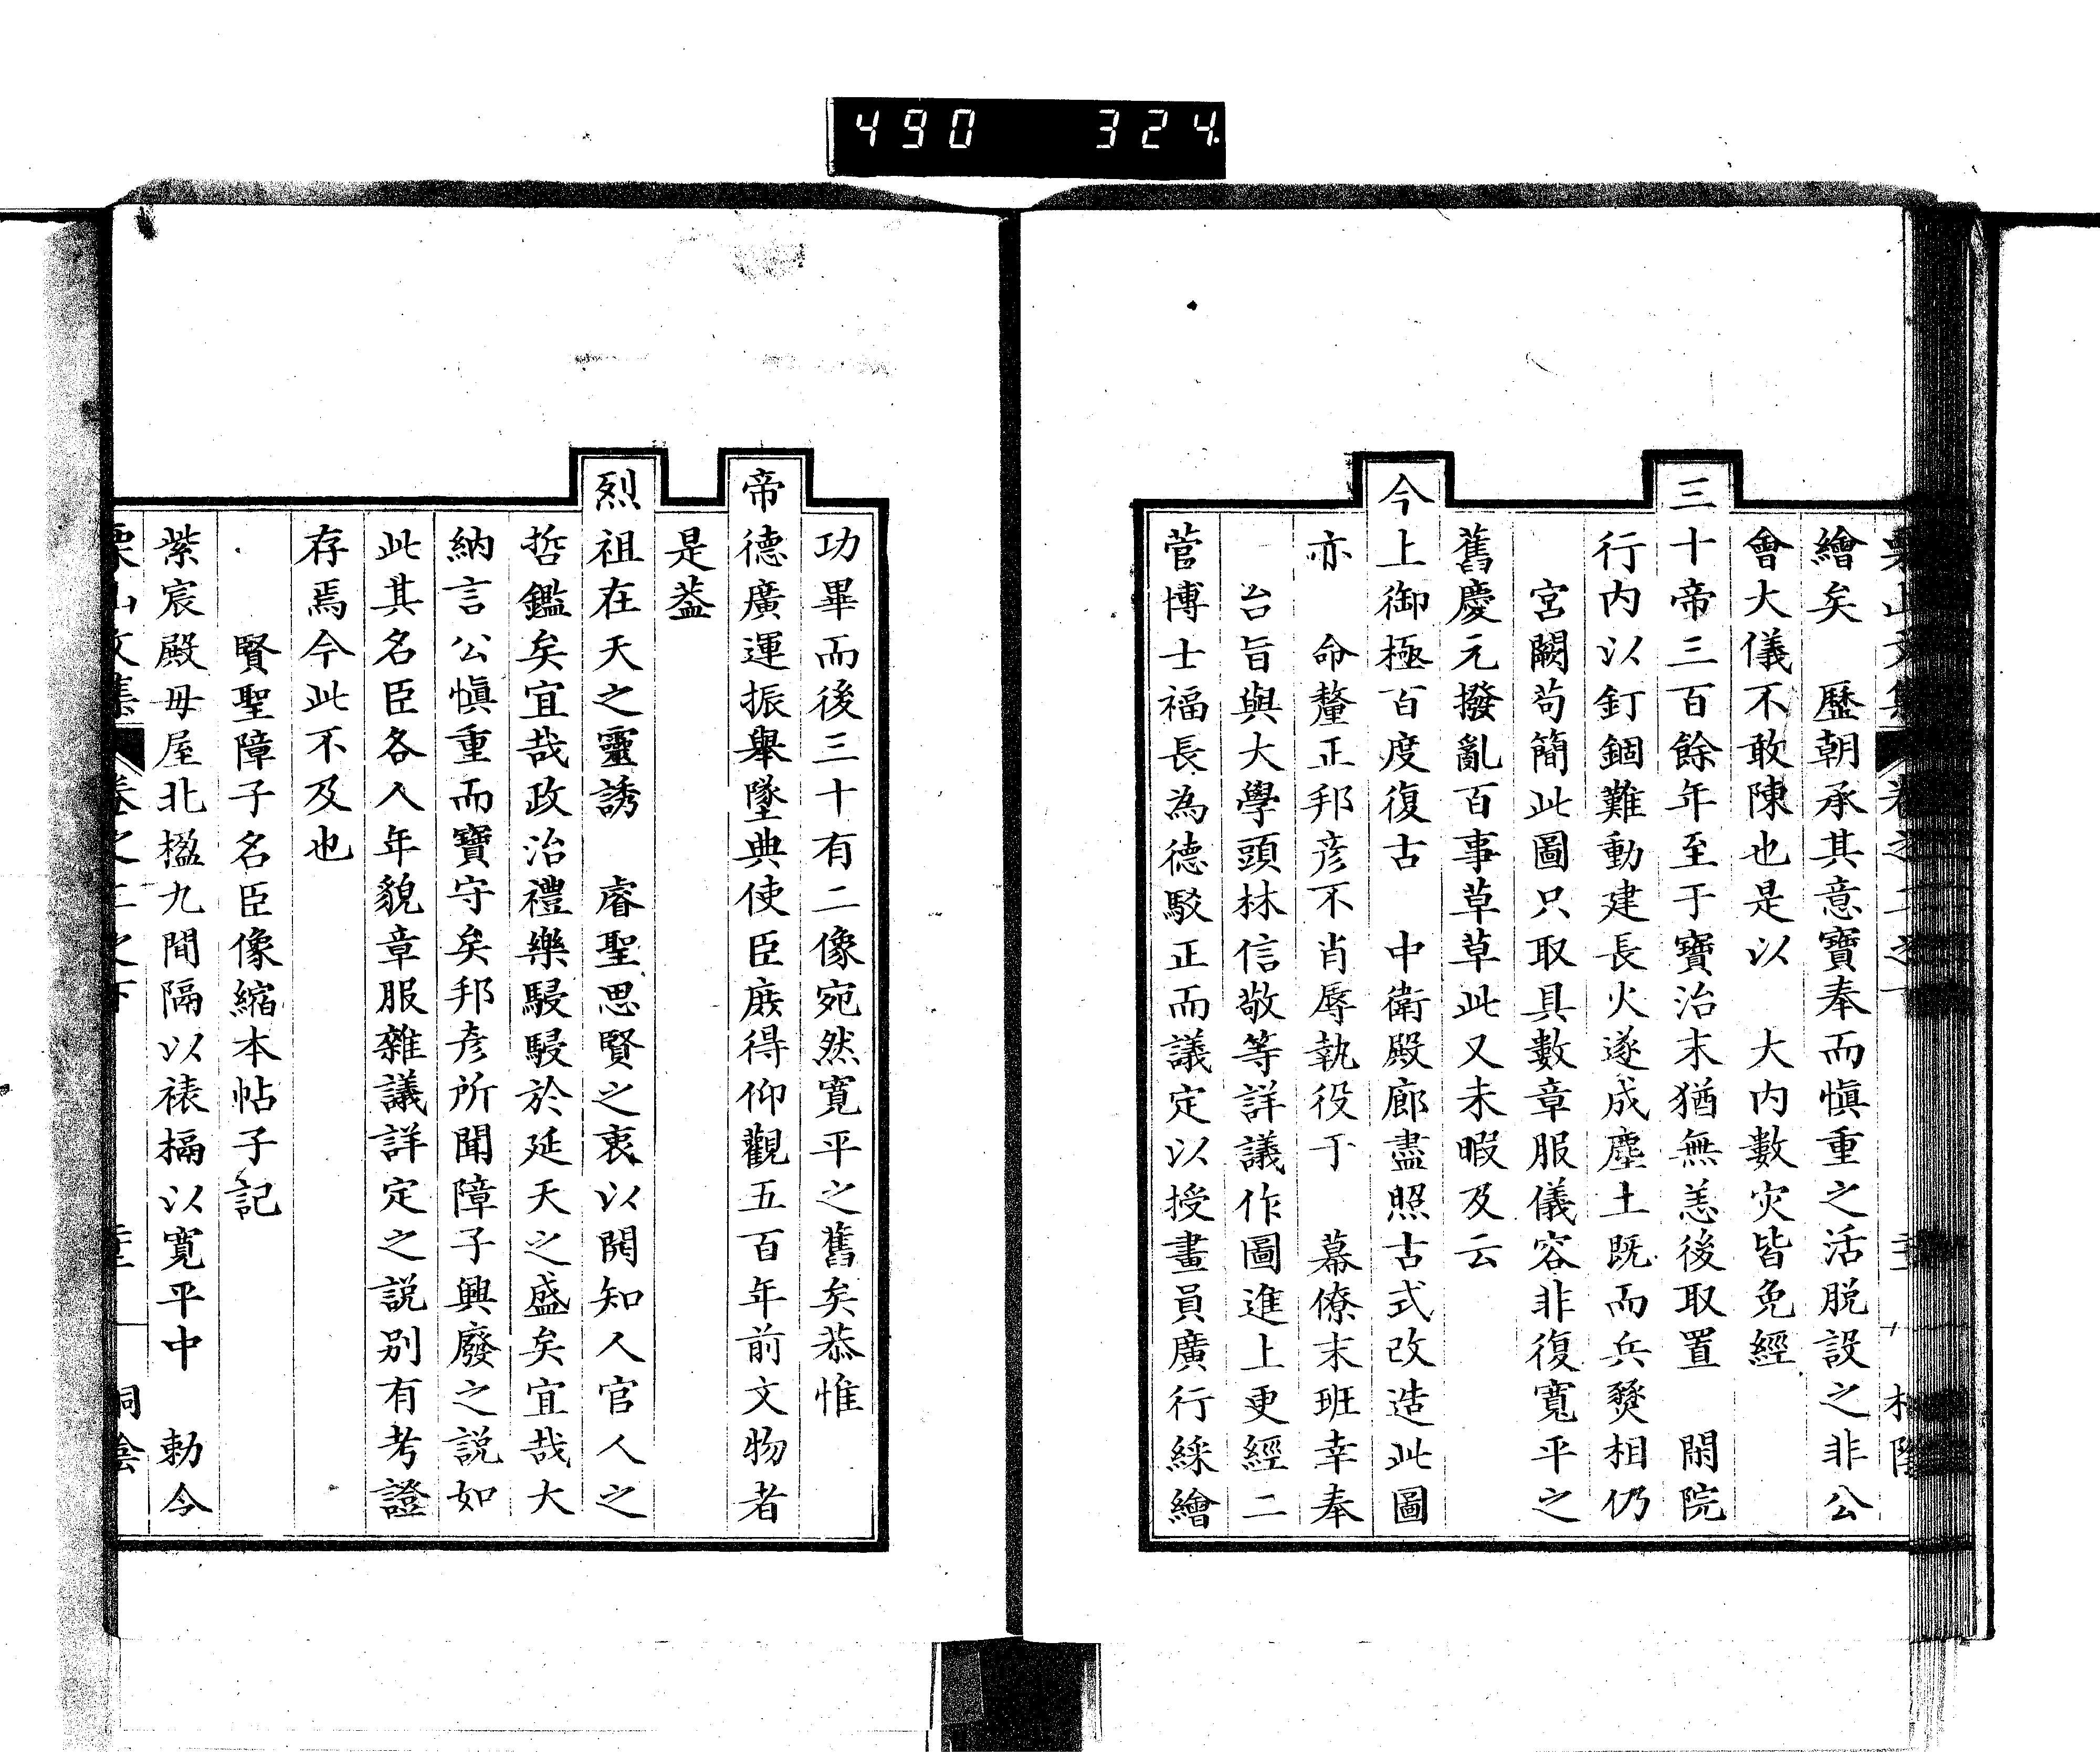 490 324
繪矣 歷朝承其意寶奉而愼重之活脱設之非公
會大儀不敢陳也是以 大内數灾皆免經
三十帝三百餘年至于寶治末猶無恙後取置 閑院
行内以釘錮難動建長火遂成塵土既而兵燹相仍
宮闕苟簡此圖只取具數章服儀容非復寬平之
舊慶元撥亂百事草草此又未暇及云
今上御極百度復古 中衛殿廊盡照古式改造此圖
亦 命釐正邦彦不肖辱執役于 幕僚末班幸奉
台旨與大學頭林信敬等詳議作圖進上更經二
菅博士福長為德駁正而議定以授畫員廣行綵繪
功畢而後三十有二像宛然寬平之舊矣恭惟
帝德廣運振舉墜典使臣庶得仰觀五百年前文物者
是葢
烈祖在天之靈誘 睿聖思賢之衷以開知人官人之
哲鑑矣宜哉政治禮樂駸駸於延天之盛矣宜哉大
納言公愼重而寶守矣邦彦所聞障子興廢之説如
此其名臣各人年貌章服雜議詳定之説别有考證
存焉今此不及也
賢聖障子名臣像縮本帖子記
紫宸殿毋屋北楹九間隔以裱槅以寛平中 勅令
栗山文集 卷之二之下